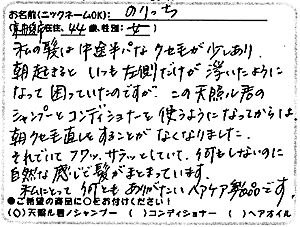 お名前(ニックネームOK): のりっち
(京都府在住、44歳、性別: 女)
私の髪は中途半パなクセ毛が少しあり
朝起きると いつも左側だけが 浮いたように
なって困っていたのですが、この天照ル君の
シャンプーとコンディショナーを使うようになってからは
朝クセ直しをすることがなくなりました。
それでいてフワッ、サラッとしていて、何もしないのに
自然な感じで髪がまとまっています。
私にとって 何とも ありがたい ヘアケア製品です。
●ご希望の商品に○をお付けください!
(○)天照ル君ノシャンプー ( )コンディショナー ( )ヘアオイル